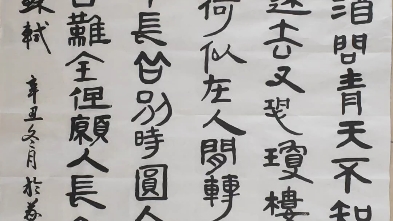 酒問青天不知
去又恐瓊樓
何似在人間轉
長向別時圓人
古難全但願人長
蘇軾 辛丑冬月於